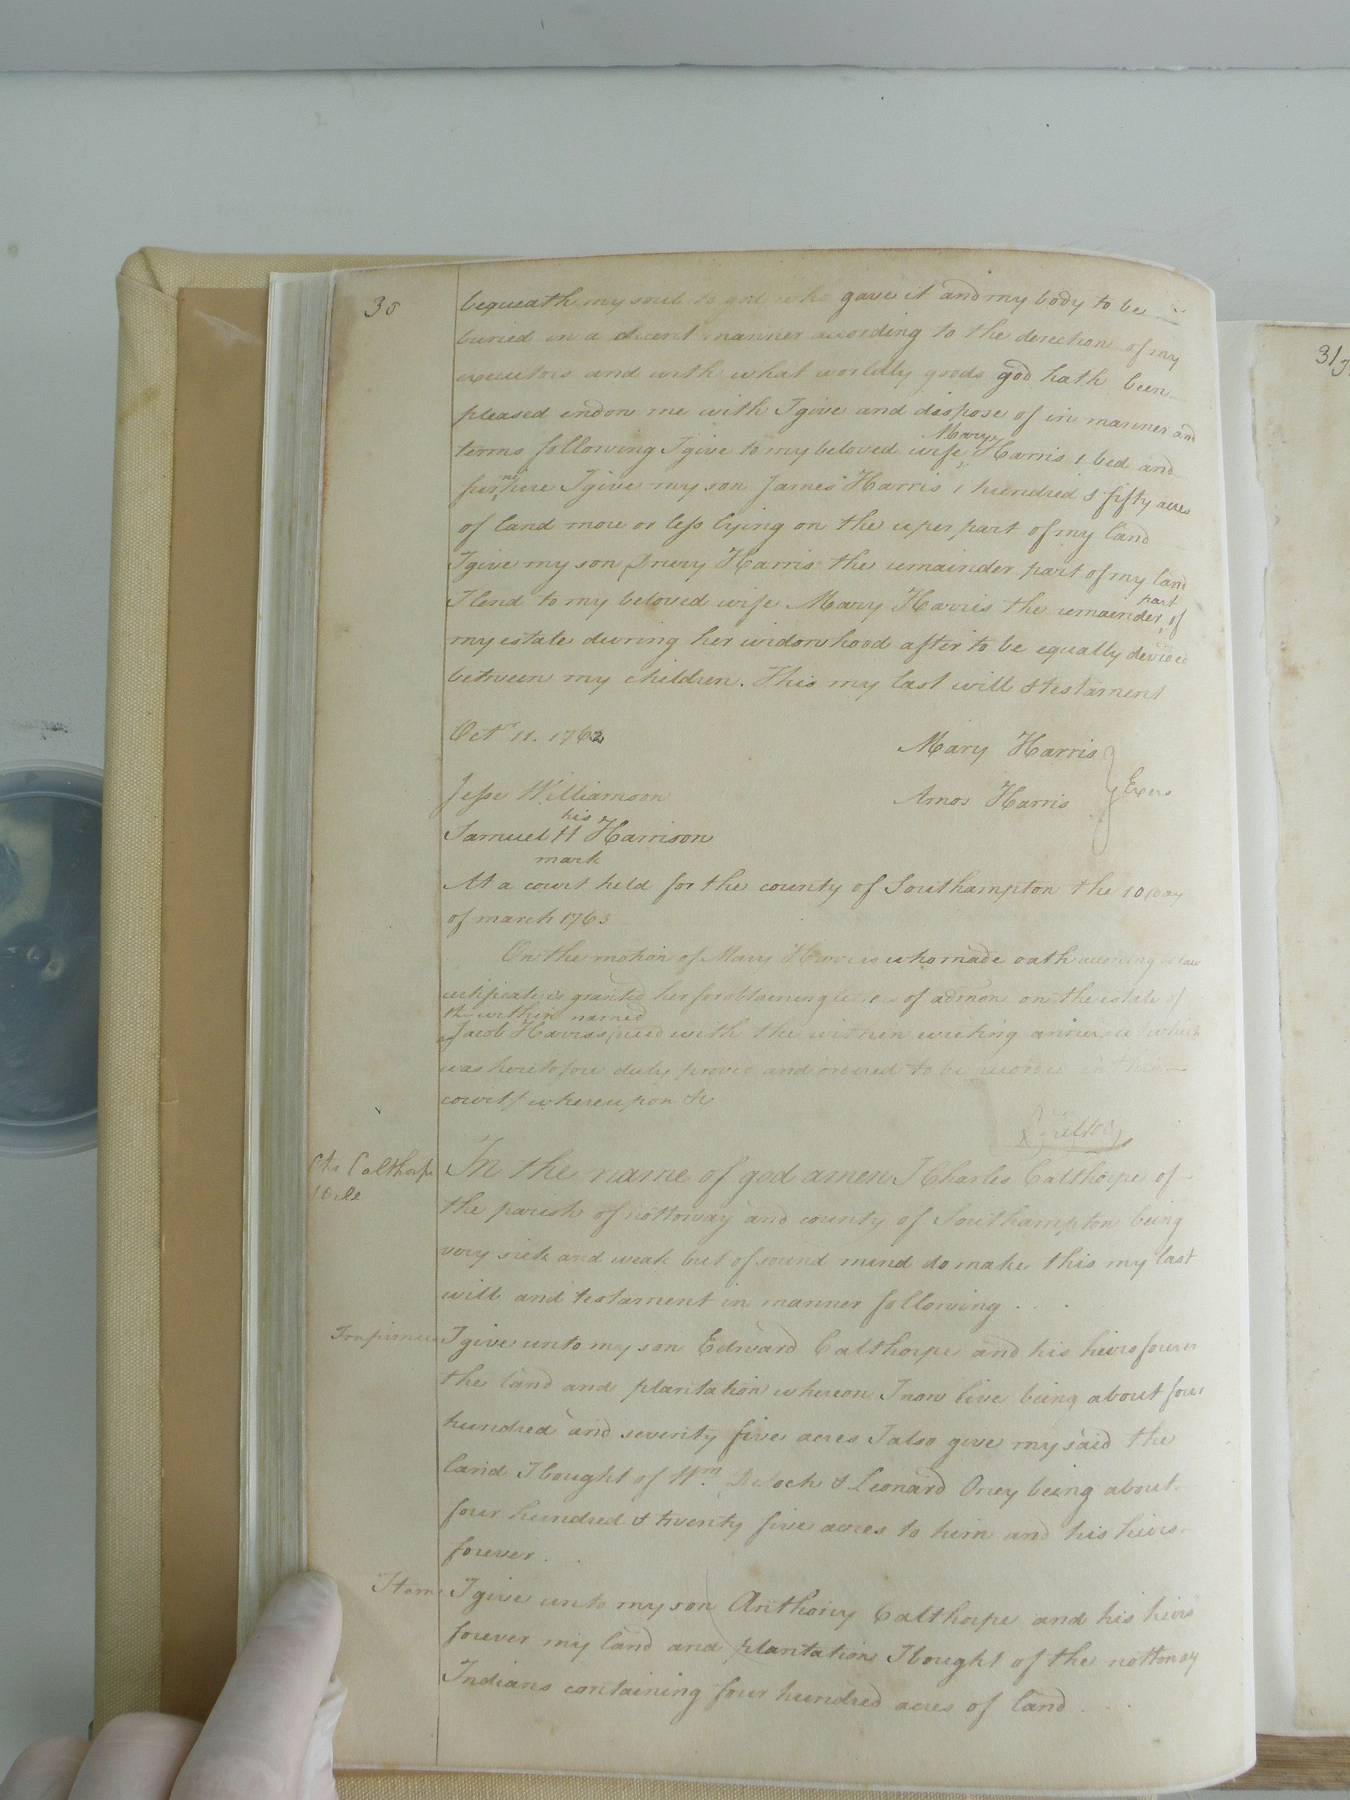 38
bequeath my soul to god who gave it and my body to be
buried in a decent manner according to the derection of my
executors and with what worldly goods god hath been
pleased endow me with I give and dispose of in manner and
terms following I give to my beloved wife Mary Harris 1 bed and
furniture I give my son James Harris 1 hundred & fifty acres
of land more or less lying on the uper part of my land
I give my son Drury Harris the remainder part of my land
I lend to my beloved wife Mary Harris the remainder part of
my estate during her widowhood after to be equally devided
between my children. This my last will & testament
Octr 11. 1762
Mary Harris
Jesse Williamson
Amos Harris
Exers
his
Samuel H Harrison
mark
At a court held for the county of Southampton the 10 day
of march 1763
On the motion of Mary Harris who made oath according to law
certificate is granted her for obtaining letters of admon on the estate of
the within named
Jacob Harris with the within writing annexed which
was heretofore duly proved and ordered to be recorded in this
court whereupon &c
Chs Calthorpe
Will
In the name of god amen I Charles Calthorpe of
the parish of nottoway and county of Southampton being
very sick and weak but of sound mind do make this my last
will and testament in manner following . .
Imprimis I give unto my son Edward Calthorpe and his heirs forever
the land and plantation whereon I now live being about four
hundred and seventy five acres I also give my said the
land I bought of Wm Deloch & Leonard Oney being about
four hundred & twenty five acres to him and his heirs
forever . .
Item I give unto my son Anthony Calthorpe and his heirs
forever my land and plantation I bought of the nottoway
Indians containing four hundred acres of land . . .